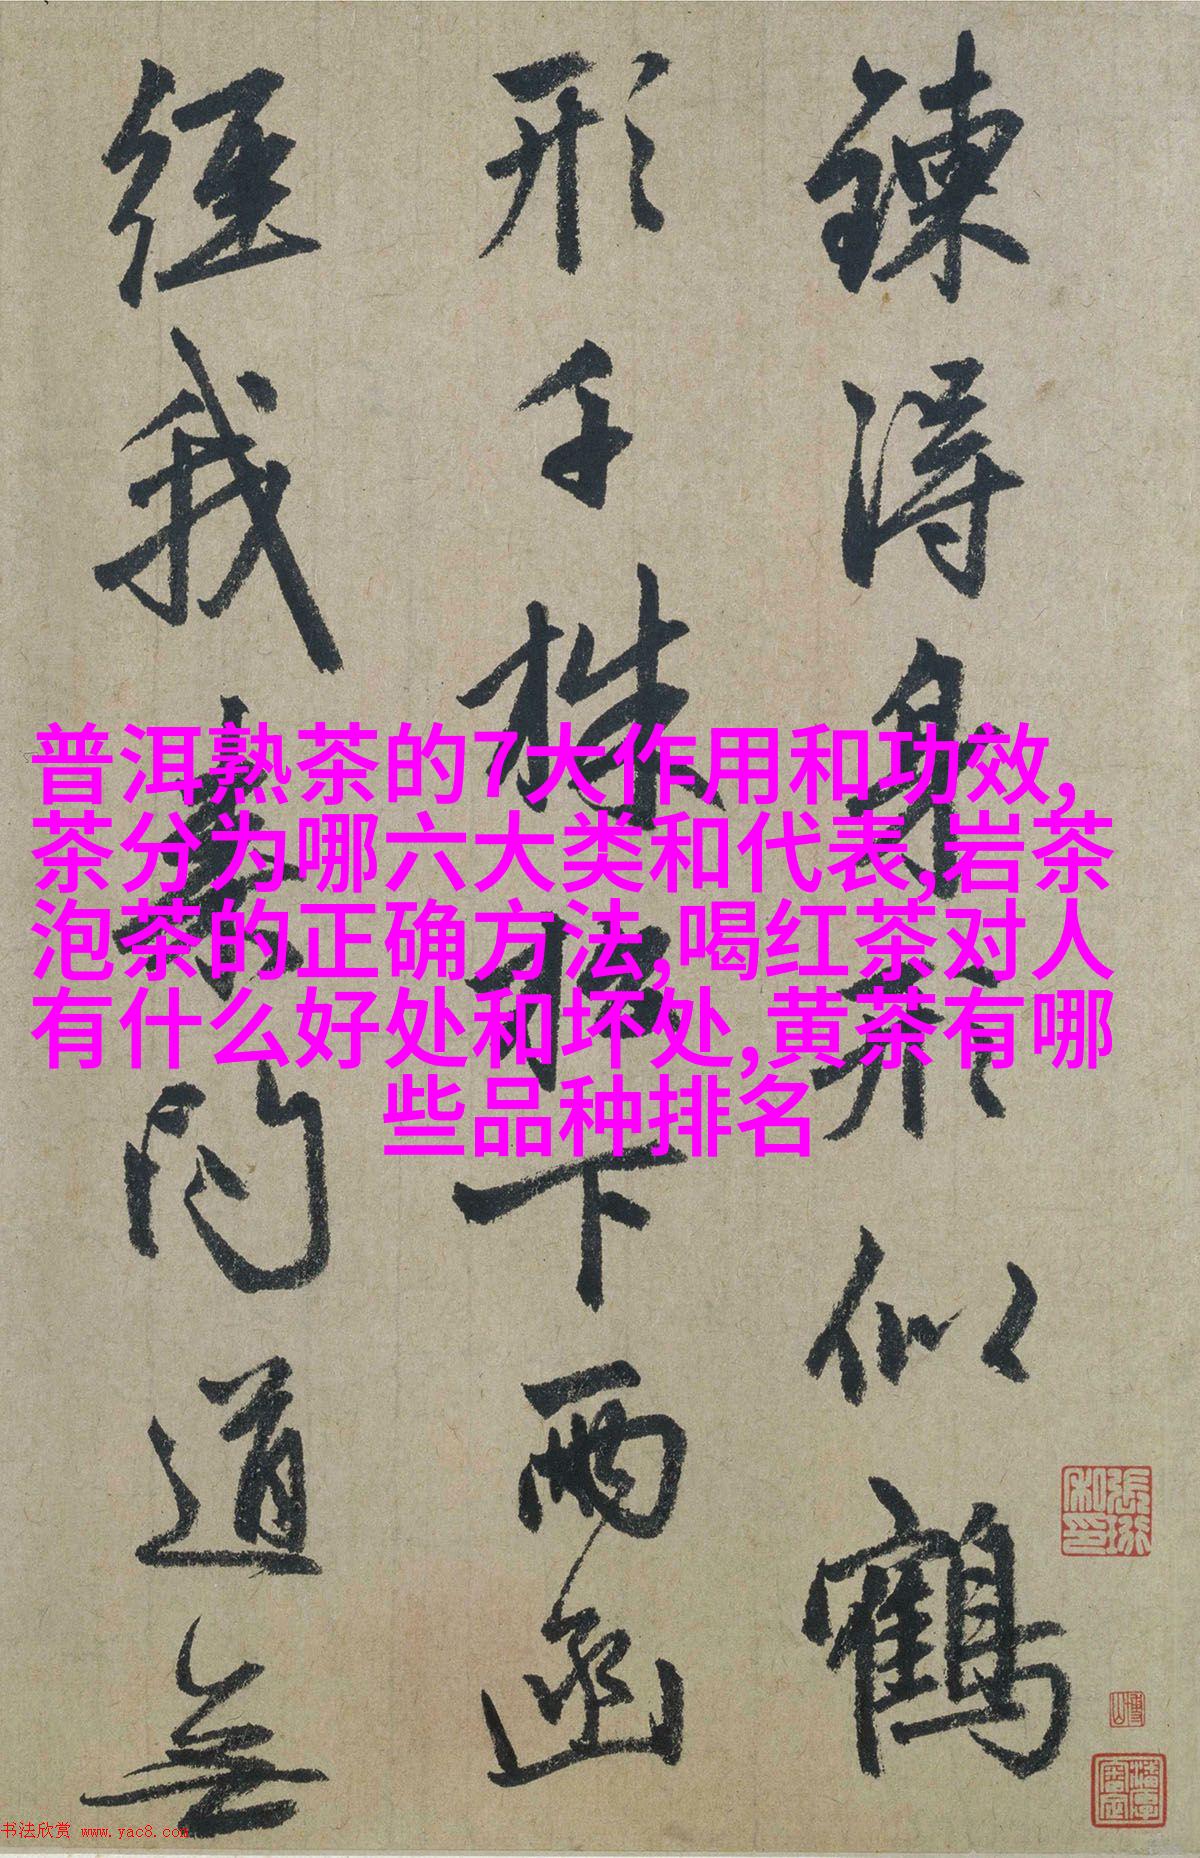 鍊得身形似鶴
形千株松下兩函
經我来問道無
普洱熟茶的7大作用和功效,
茶分为哪六大类和代表,岩茶
泡茶的正确方法,喝红茶对人
有什么好处和坏处,黄茶有哪
些品种排名
书法欣赏 www.yac8.com